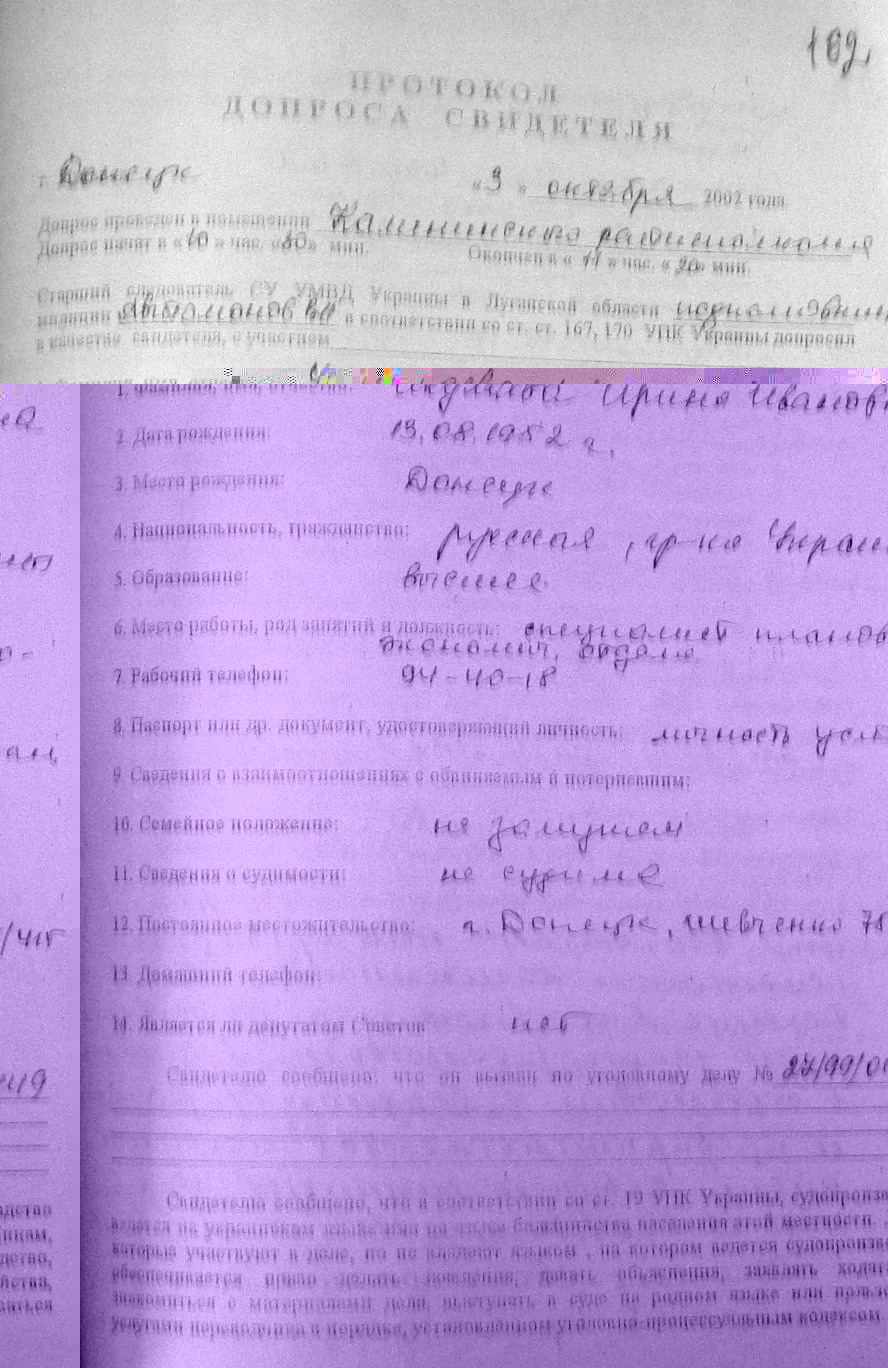 162
ПРОТОКОЛ
ДОПРОСА СВИДЕТЕЛЯ
г. Донецк «3» октября 2002 года.
Допрос проведен в помещении Калининского райисполкома
Допрос начат в «10» час. «30» мин. Окончен в «11» час. «20» мин.
Старший следователь СУ УМВД Украины в Луганской области подполковник
милиции в соответствии со ст. ст. 167, 170 УПК Украины допросил
в качестве свидетеля, с участием
1. Фамилия, имя, отчество: Ирина Иванов
2. Дата рождения: 13.08.1952 г.
3. Место рождения: Донецк
4. Национальность, гражданство: русская, гр-ка Украи
5. Образование: высшее
6. Место работы, род занятий и должность: специалист планов
экономич. отдела
7. Рабочий телефон: 94-40-18
8. Паспорт или др. документ, удостоверяющий личность: личность уст
9. Сведения о взаимоотношениях с обвиняемым и потерпевшим:
10. Семейное положение: не замужем
11. Сведения о судимости: не судима
12. Постоянное местожительство: г. Донецк, Шевченко 78
13. Домашний телефон:
14. Является ли депутатом Советов нет
Свидетелю сообщено: что он вызван по уголовному делу № 27/99/0
Свидетелю сообщено, что в соответствии со ст. 19 УПК Украины, судопроизв
водство
ведется на украинском языке или на языке большинства населения этой местности.
которые участвуют в деле, но не владеют языком, на котором ведется судопроизво
обеспечивается право делать заявления, давать объяснения, заявлять ходат
знакомиться с материалами дела, выступать в суде на родном языке или пользо
услугами переводчика в порядке, установленном уголовно-процессуальным кодексом.